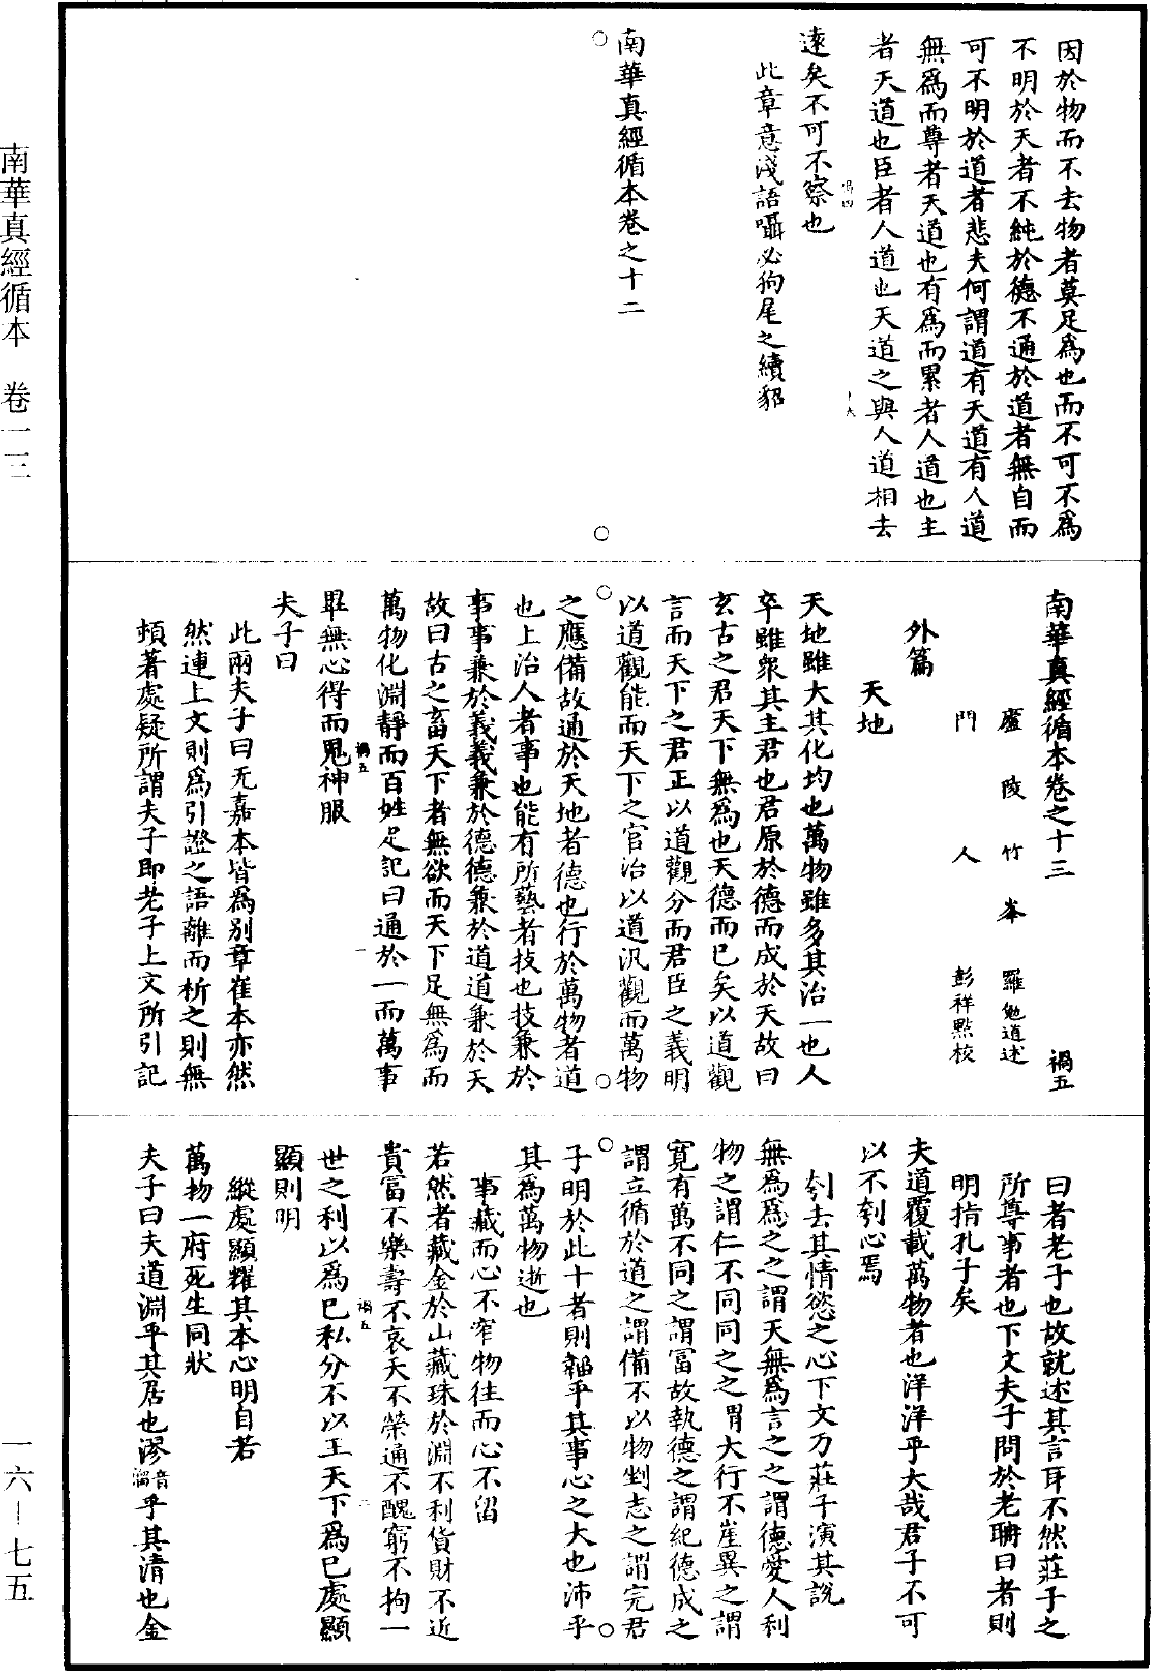 因於物而不去物者莫足為也而不可不為
不明於天者不純於德不通於道者無自而
可不明於道者悲夫何謂道有天道有人道
無為而尊者天道也有為而累者人道也主
者天道也臣者人道也天道之與人道相去
禍四
十六
遠矣不可不察也
此章意淺語囁必狗尾之續貂
南華真經循本卷之十二
南華真經循本卷之十三
禍五
廬陵竹峯羅勉道述
門人彭祥點校
外篇
天地
天地雖大其化均也萬物雖多其治一也人
卒雖衆其主君也君原於德而成於天故曰
玄古之君天下無為也天德而已矣以道觀
言而天下之君正以道觀分而君臣之義明
以道觀能而天下之官治以道汎觀而萬物
之應備故通於天地者德也行於萬物者道
也上治人者事也能有所藝者技也技兼於
事事兼於義義兼於德德兼於道道兼於天
故曰古之畜天下者無欲而天下足無為而
萬物化淵靜而百姓足記曰通於一而萬事
禍五
一
畢無心得而鬼神服
夫子曰
此兩夫子曰无嘉本皆為別章崔本亦然
然連上文則為引證之語離而析之則無
頓著處疑所謂夫子即老子上文所引記
曰者老子也故就述其言耳不然莊子之
所尊事者也下文夫子問於老聃曰者則
明指孔子矣
夫道覆載萬物者也洋洋乎大哉君子不可
以不刳心焉
刳去其情慾之心下文乃莊子演其說
無為為之之謂天無為言之之謂德愛人利
物之謂仁不同同之之謂大行不崖異之謂
寬有萬不同之謂富故執德之謂紀德成之
謂立循於道之謂備不以物剉志之謂完君
子明於此十者則韜乎其事心之大也沛乎
其為萬物逝也
事藏而心不窄物往而心不留
若然者藏金於山藏珠於淵不利貨財不近
貴富不樂壽不哀夭不榮通不醜窮不拘一
禍五
二
世之利以為已私分不以王天下為已處顯
顯則明
縱處顯耀其本心明自若
萬物一府死生同狀
夫子曰夫道淵乎其居也漻音溜乎其清也金
南華真經循本　卷一二
一六—七五